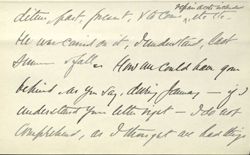 past, present, & to come, etc. etc.
He was cared on it, I understand, last
summer & fall. How we could have gone
behind, as you say, during January — if I
understand your letter right — I do not
comprehend, as I thought we had things